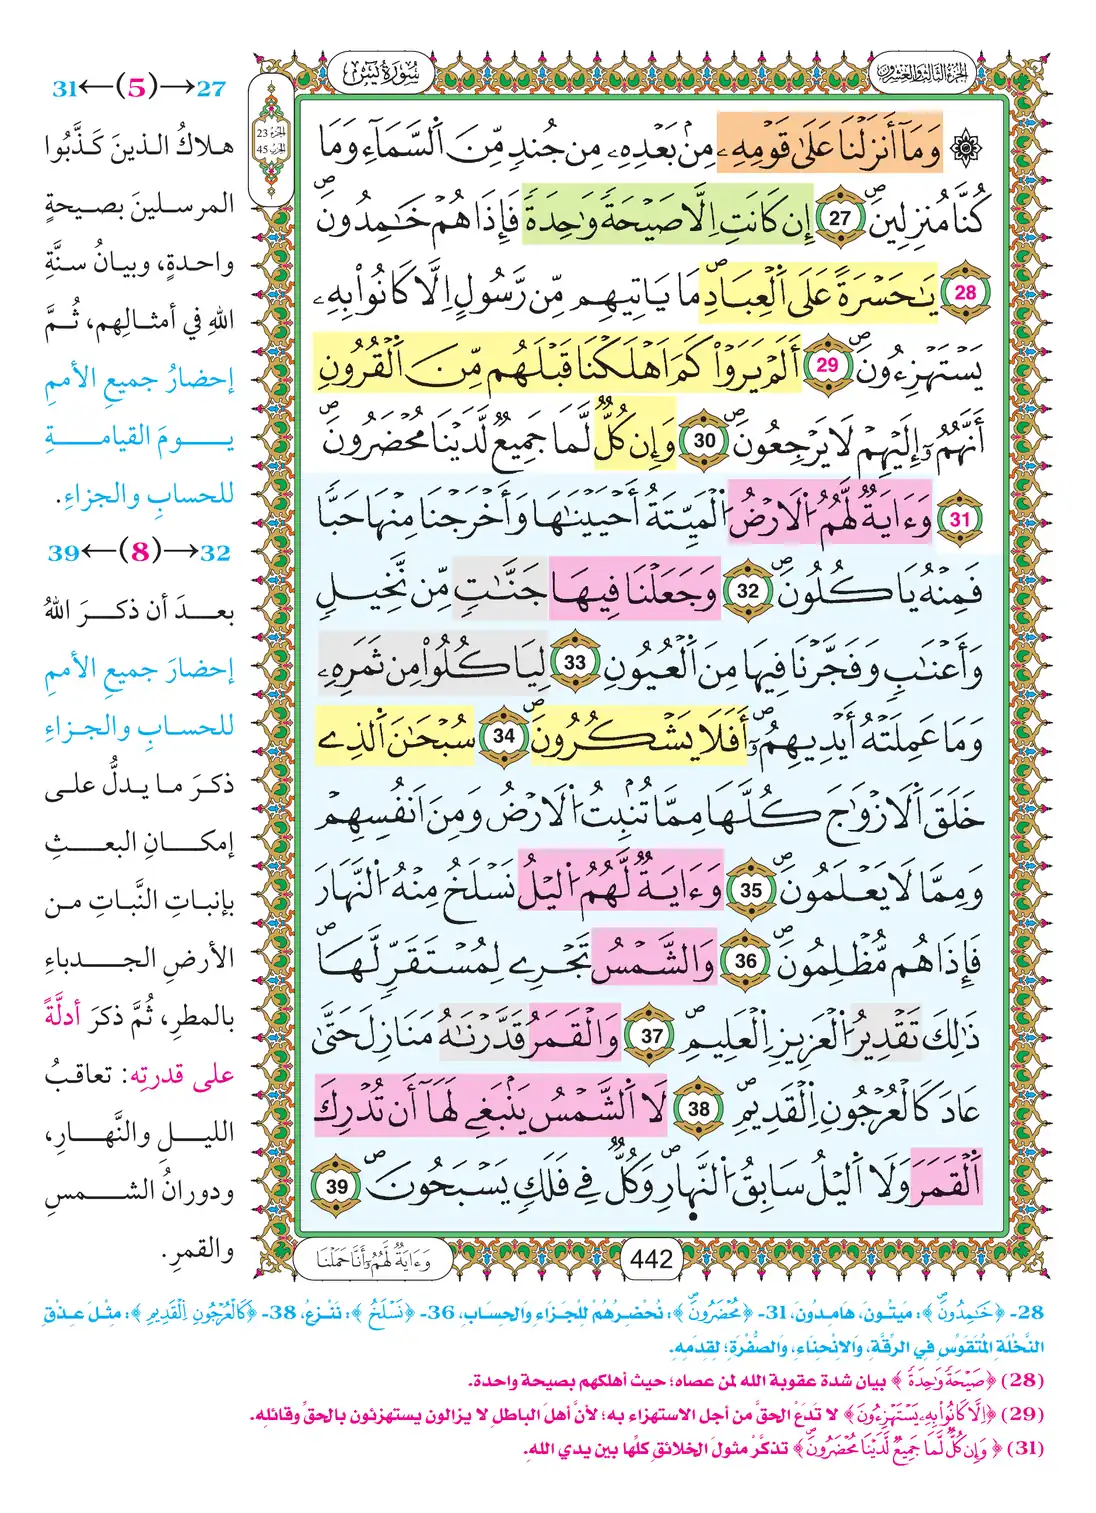 الجزء الثالث والعشرون
سُورَةُ يسٓ
الجزء 23
الحزب 45
وَمَآ أَنزَلْنَا عَلَىٰ قَوْمِهِۦ مِنۢ بَعْدِهِۦ مِن جُندٖ مِّنَ اَ۬لسَّمَآءِ وَمَا
كُنَّا مُنزِلِينَۖ 27 إِن كَانَتِ اِلَّا صَيْحَةٗ وَٰحِدَةٗ فَإِذَا هُمْ خَٰمِدُونَۖ
28 يَٰحَسْرَةً عَلَى اَ۬لْعِبَادِۖ مَا يَاتِيهِم مِّن رَّسُولٍ اِلَّا كَانُواْ بِهِۦ
يَسْتَهْزِءُونَۖ 29 أَلَمْ يَرَوْاْ كَمَ اَهْلَكْنَا قَبْلَهُم مِّنَ اَ۬لْقُرُونِ
أَنَّهُمُۥٓ إِلَيْهِمْ لَا يَرْجِعُونَۖ 30 وَإِن كُلّٞ لَّمَا جَمِيعٞ لَّدَيْنَا مُحْضَرُونَۖ
31 وَءَايَةٞ لَّهُمُ اُ۬لَارْضُ اُ۬لْمَيِّتَةُ أَحْيَيْنَٰهَا وَأَخْرَجْنَا مِنْهَا حَبّٗا
فَمِنْهُ يَاكُلُونَۖ 32 وَجَعَلْنَا فِيهَا جَنَّٰتٖ مِّن نَّخِيلٖ
وَأَعْنَٰبٖ وَفَجَّرْنَا فِيهَا مِنَ اَ۬لْعُيُونِ 33 لِيَاكُلُواْ مِن ثَمَرِهِۦ
وَمَا عَمِلَتْهُ أَيْدِيهِمُۥٓۖ أَفَلَا يَشْكُرُونَۖ 34 سُبْحَٰنَ اَ۬لذِے
خَلَقَ اَ۬لَازْوَٰجَ كُلَّهَا مِمَّا تُنۢبِتُ اُ۬لَارْضُ وَمِنَ اَنفُسِهِمْ
وَمِمَّا لَا يَعْلَمُونَۖ 35 وَءَايَةٞ لَّهُمُ اُ۬ليْلُ نَسْلَخُ مِنْهُ اُ۬لنَّهَارَ
فَإِذَا هُم مُّظْلِمُونَۖ 36 وَالشَّمْسُ تَجْرِے لِمُسْتَقَرّٖ لَّهَاۖ
ذَٰلِكَ تَقْدِيرُ اُ۬لْعَزِيزِ اِ۬لْعَلِيمِۖ 37 وَالْقَمَرُ قَدَّرْنَٰهُ مَنَازِلَ حَتَّىٰ
عَادَ كَالْعُرْجُونِ اِ۬لْقَدِيمِۖ 38 لَا اَ۬لشَّمْسُ يَنۢبَغِے لَهَآ أَن تُدْرِكَ
اَ۬لْقَمَرَ وَلَا اَ۬ليْلُ سَابِقُ اُ۬لنَّهَارِۖ وَكُلّٞ فِے فَلَكٖ يَسْبَحُونَۖ 39
442
وَءَايَةٞ لَّهُمُۥٓ أَنَّا حَمَلْنَا
27→(5)←31
هلاكُ الذينَ كَذَّبُوا
المرسلينَ بصيحةٍ
واحدةٍ، وبيانُ سنَّةِ
اللهِ في أمثالِهم، ثُمَّ
إحضارُ جميعِ الأممِ
يومَ القيامةِ
للحسابِ والجزاءِ.
32→(8)←39
بعدَ أن ذكرَ اللهُ
إحضارَ جميعِ الأممِ
للحسابِ والجزاءِ
ذكرَ ما يدلُّ على
إمكانِ البعثِ
بإنباتِ النَّباتِ من
الأرضِ الجدباءِ
بالمطرِ، ثُمَّ ذكرَ أدلَّةً
على قدرتِه: تعاقبُ
الليلِ والنَّهارِ،
ودورانُ الشمسِ
والقمرِ.
28- ﴿خَٰمِدُونَۖ﴾: مَيِّتُونَ، هَامِدُونَ، 31- ﴿مُحْضَرُونَۖ﴾: نُحْضِرُهُمْ لِلْجَزَاءِ وَالحِسَابِ، 36- ﴿نَسْلَخُ﴾: نَنْزِعُ، 38- ﴿كَالْعُرْجُونِ اِ۬لْقَدِيمِ﴾: مِثْلَ عِذْقِ
النَّخْلَةِ المُتَقَوِّسِ فِي الرِّقَّةِ، وَالِانْحِنَاءِ، وَالصُّفْرَةِ؛ لِقِدَمِهِ.
(28) ﴿صَيْحَةٗ وَٰحِدَةٗ﴾ بيان شدة عقوبة الله لمن عصاه؛ حيث أهلكهم بصيحة واحدة.
(29) ﴿اِلَّا كَانُواْ بِهِۦ يَسْتَهْزِءُونَۖ﴾ لا تَدَعْ الحقَّ من أجل الاستهزاء به؛ لأنَّ أهلَ الباطلِ لا يزالون يستهزئون بالحقِّ وقائلِه.
(31) ﴿وَإِن كُلّٞ لَّمَا جَمِيعٞ لَّدَيْنَا مُحْضَرُونَۖ﴾ تذكَّرْ مثولَ الخلائقِ كلِّها بين يدي اللهِ.